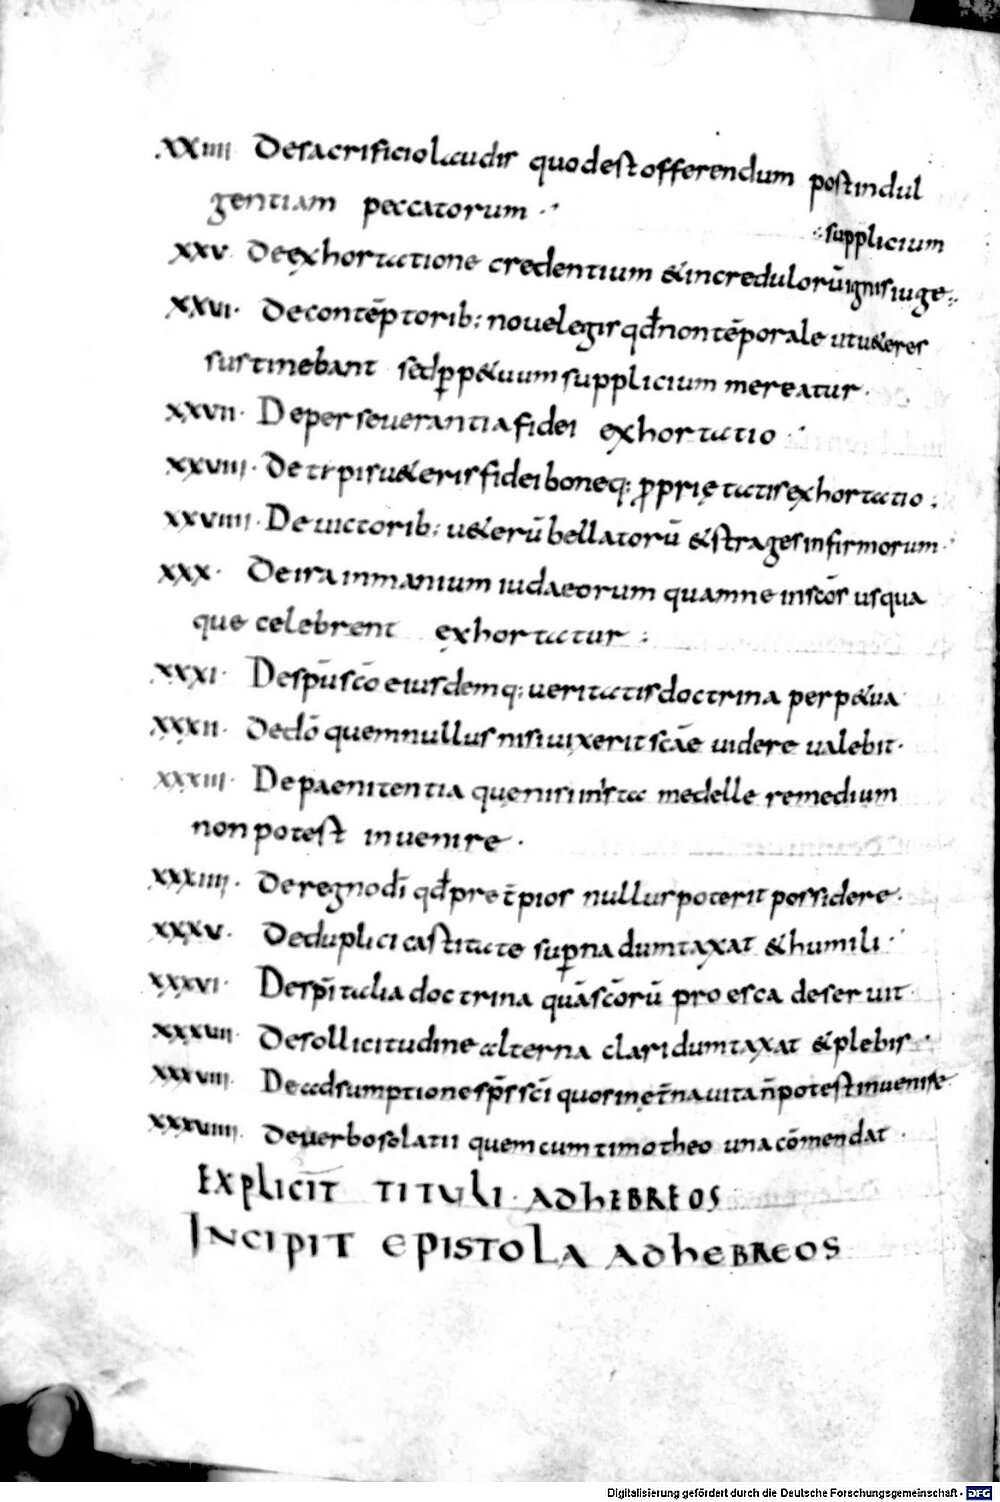 XXIIII De sacrificio laudis quod est offerendum post indul
gentiam peccatorum ·
∴ supplicium
XXV De exhortatione credentium & incredulorū ignis iuge ∴
XXVI· De contēptorib; nouę legis qđ non tēporale ut u&eres
sustinebant sed ꝑp&uum supplicium mereatur ·
XXVII· De perseuerantia fidei exhortatio ·
XXVIII· De u&eris fidei boneq; exhortatio ;
XXVIIII· De uictorib; u&erū bellatorū & strages infirmorum ·
XXX· De ira inmanium iudaeorum quam ne in sc̄os usqua
que celebrent exhortatur :
XXXI· De sp̄u sc̄o eiusdemq; ueritatis doctrina perp&ua
XXXII· De dō quem nullus nisi uixerit sc̄ae uidere ualebit·
XXXIII· De paenitentia que nisi medelle remedium
non potest inuenire ·
XXXIIII· De regno dī qđ pręt̄ pios nullus poterit possidere ·
XXXV· De duplici castitate suꝑna dumtaxat & humili ·
XXXVI· De sp̄itali a doctrina quā sc̄orū pro esca deseruit ·
XXXVII· De sollicitudine alterna clari dumtaxat & plebis ·
XXXVIII· De adsumptione sp̄s sc̄i quo sine ęt̄na uita n̄ potest inuenire
XXXVIIII· De uerbo solatii quem cum timotheo una cōmendat ·
EXPLICIT TITULI · AD HEBREOS
INCIPIT EPISTOLA AD HEBREOS
Digitalisierung gefördert durch die Deutsche Forschungsgemeinschaft - DFG